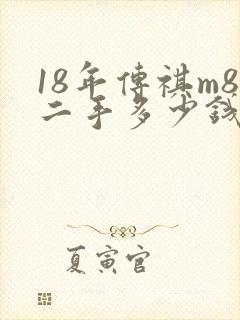 18年傳祺m8
二手多少錢
夏寅官